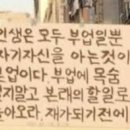 인생은 모두 부업일뿐
자기자신을 아는것이
업이다. 부업에 목숨
걷지말고 본래의 할일로
돌아오라. 재가되기전에